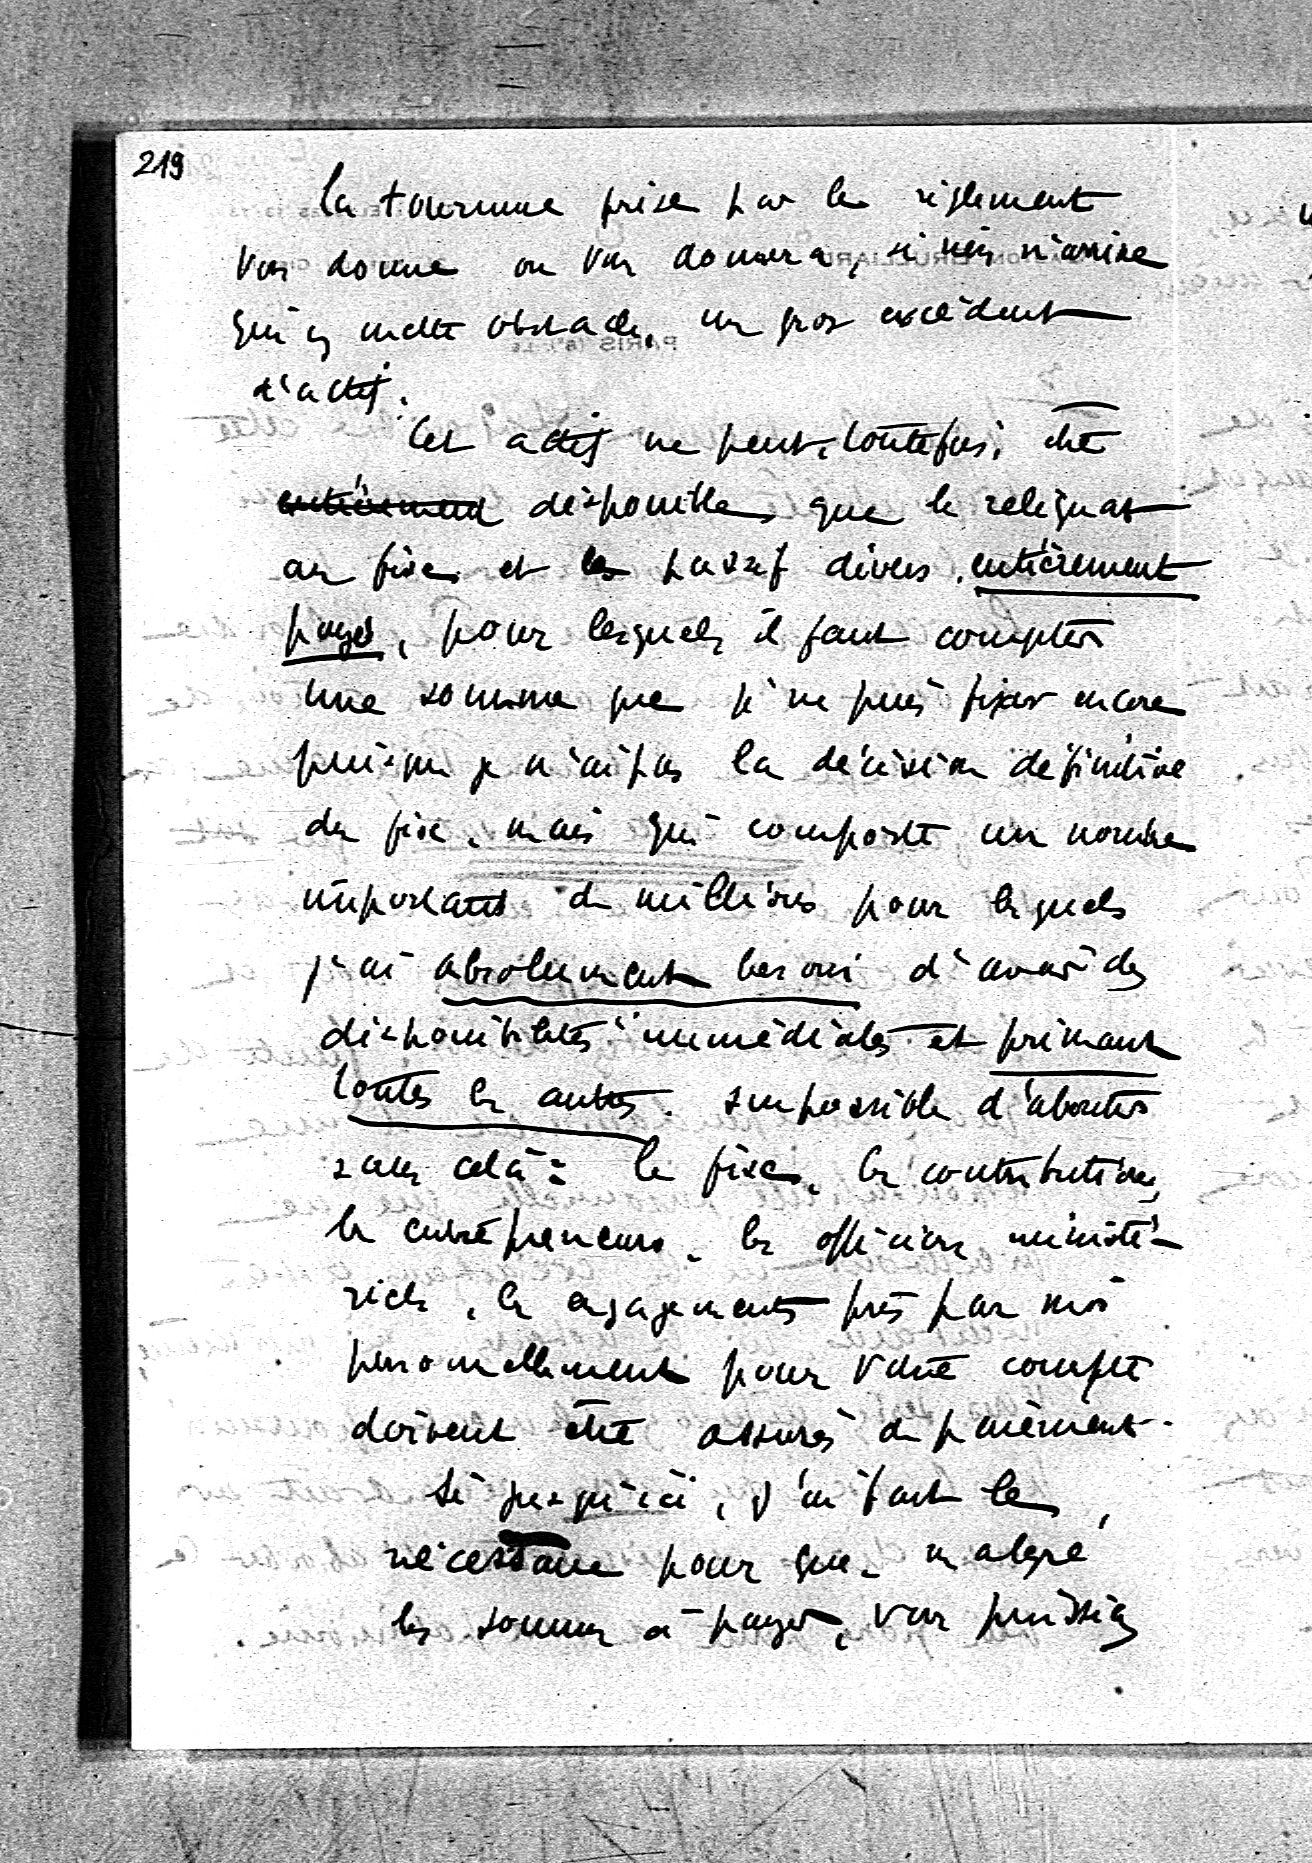 219
La tournure prise par le règlement
vous donne ou vous donnera, si rien n'arrive
qui y mette obstacle, un gros excédent
d'actif.
Cet actif ne peut, toutefois, être
entièrement disponible, que le reliquat
au fisc et les passif divers, entièrement
payés, pour lesquels il faut compter
une somme que je ne puis fixer encore
puisque je n'ai pas la décision définitive
du fisc, mais qui comporte un nombre
important de millions pour lesquels
j'ai absolument besoin d'avoir des
disponibilités immédiates et primant
toutes les autres. Impossible d'aboutir
sans cela : le fisc, les contributions,
les entrepreneurs, les officiers ministé-
riels, les engagements pris par moi
personnellement pour votre compte
doivent être assurés de paiement.
Si jusqu'ici, j'ai fait le
nécessaire pour que, malgré
les sommes à payer, vous puissiez